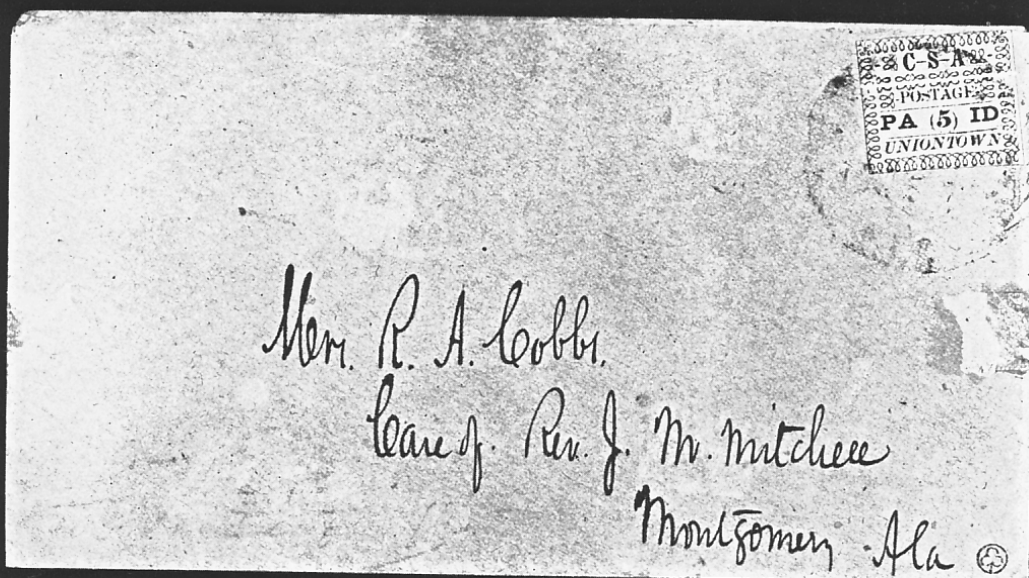 C-S-A
POSTAGE
PA (5) ID
UNIONTOWN
Mrs. R. A. Cobbs.
Care of. Rev. J. M. Mitchell
Montgomery Ala